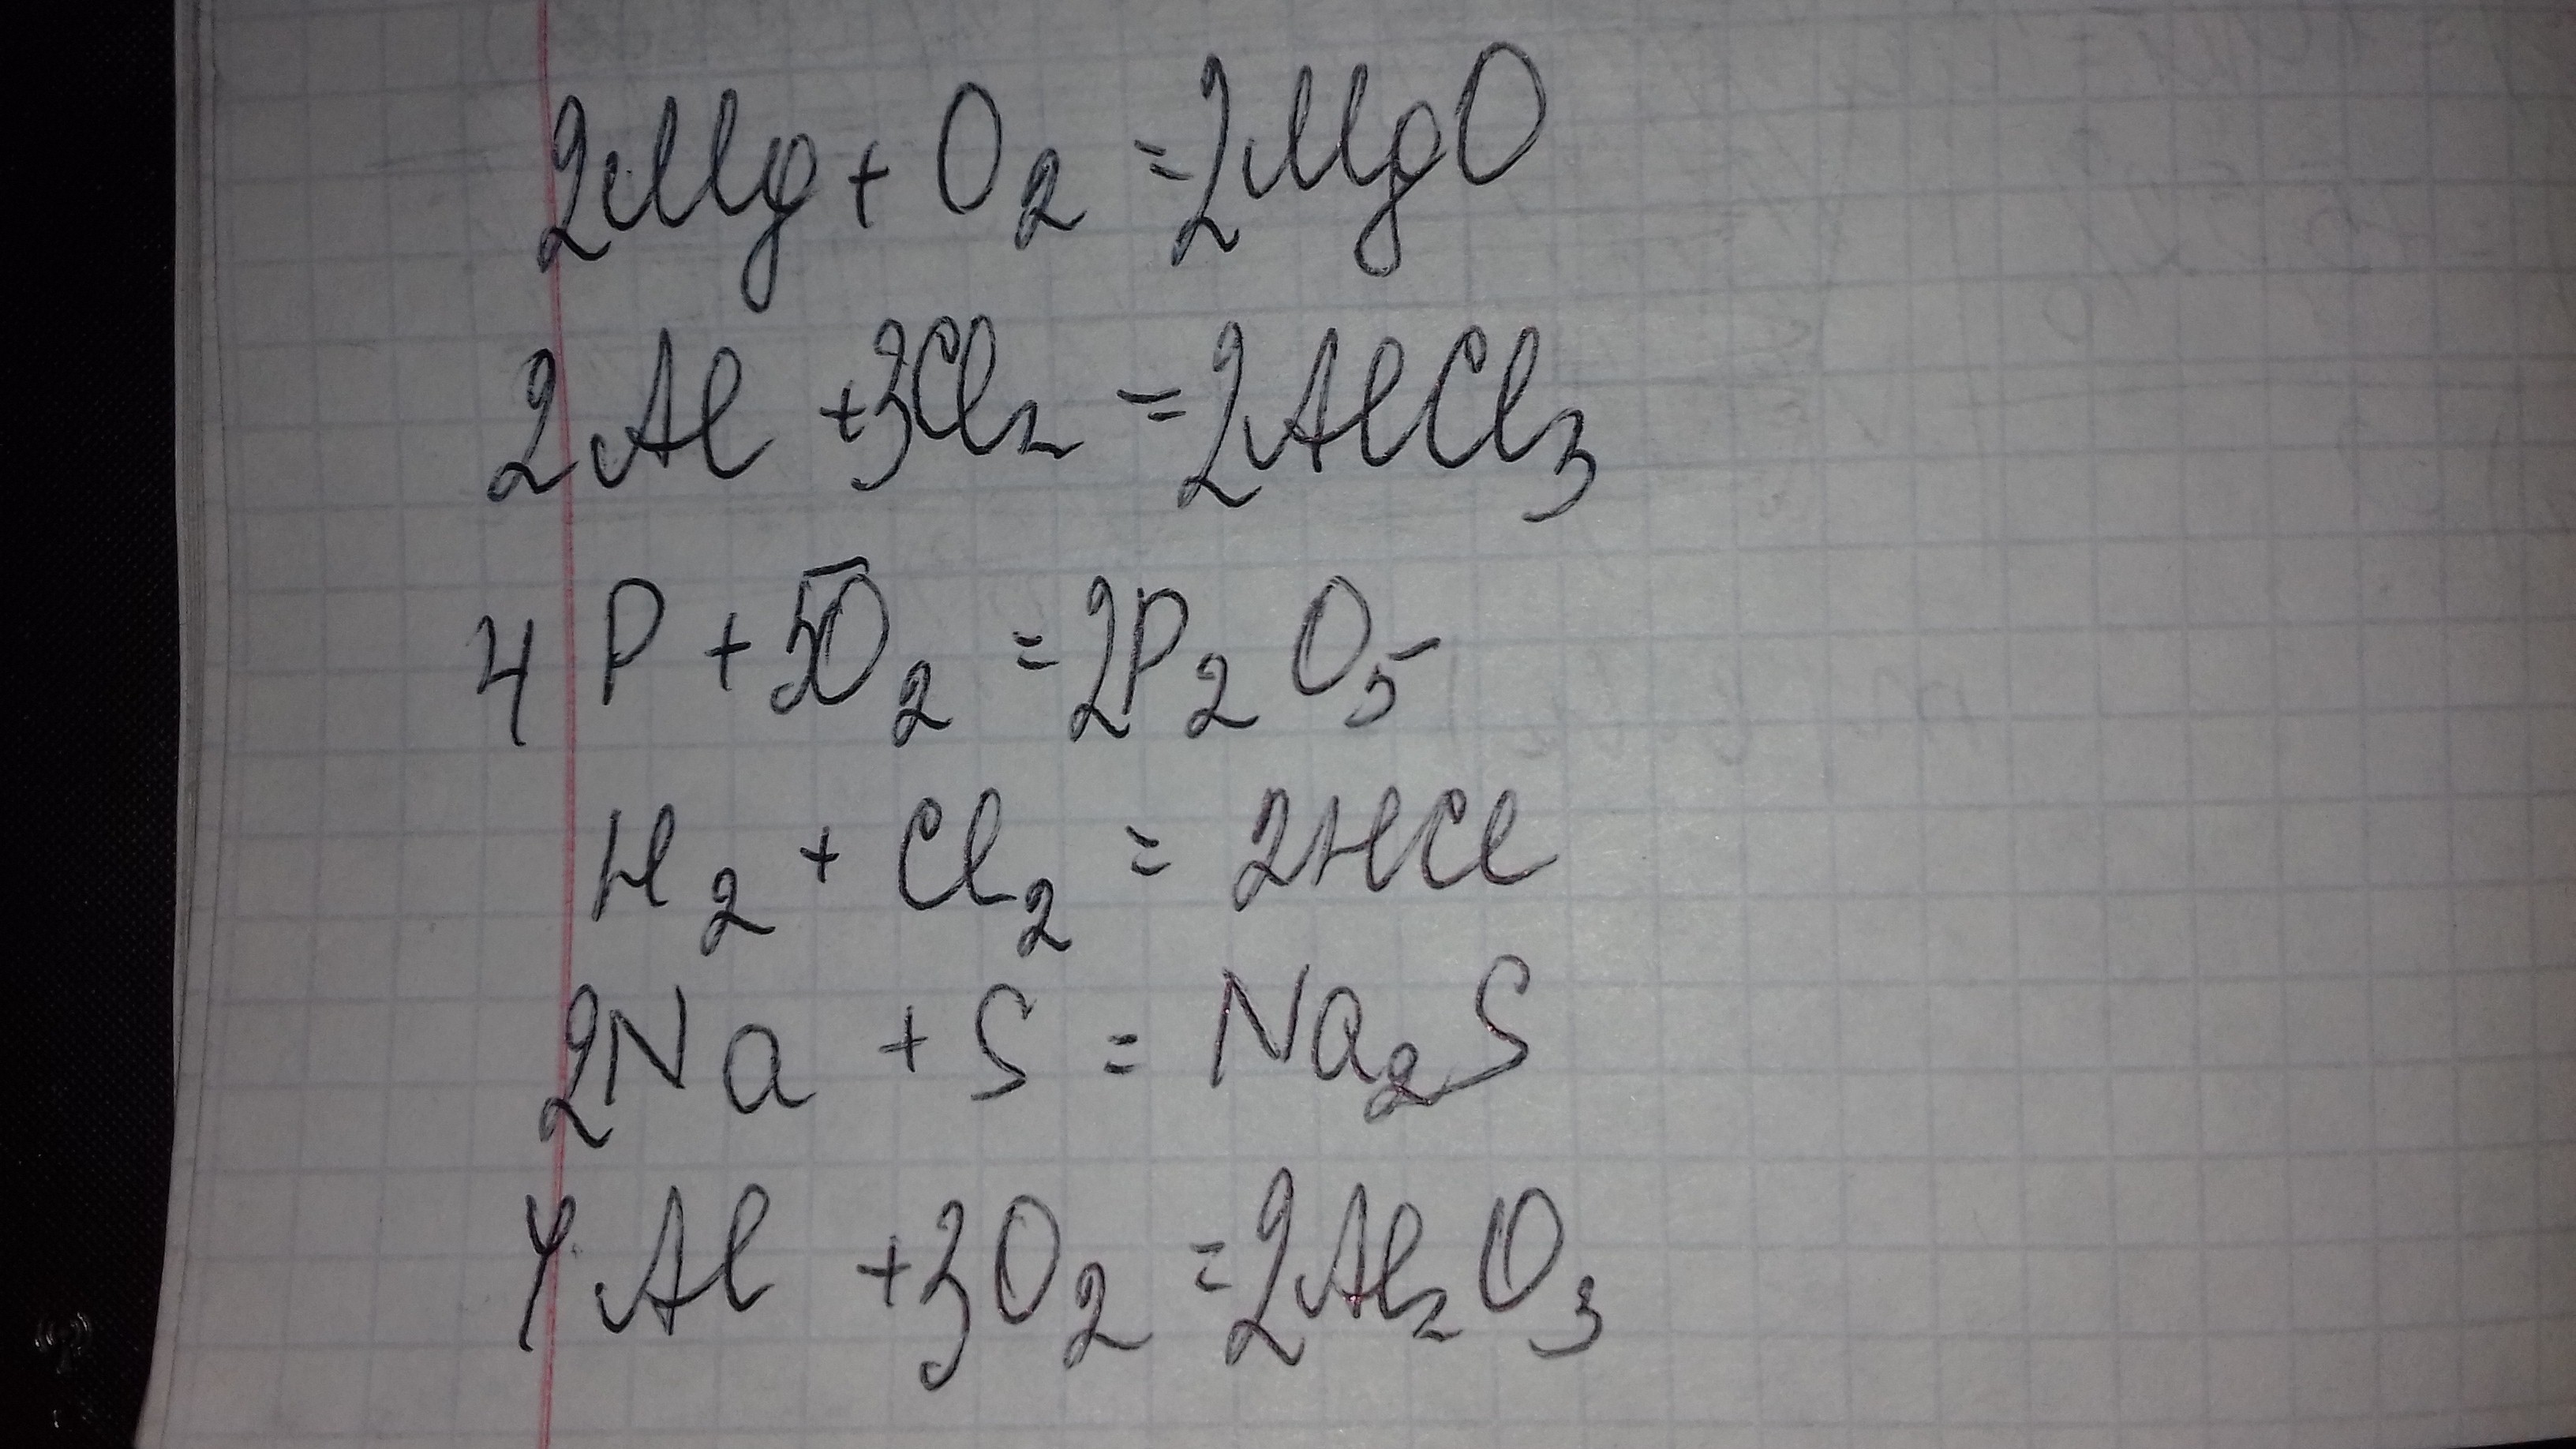 2Mg + O₂ = 2MgO
2Al + 3Cl₂ = 2AlCl₃
4P + 5O₂ = 2P₂O₅
H₂ + Cl₂ = 2HCl
2Na + S = Na₂S
4Al + 3O₂ = 2Al₂O₃